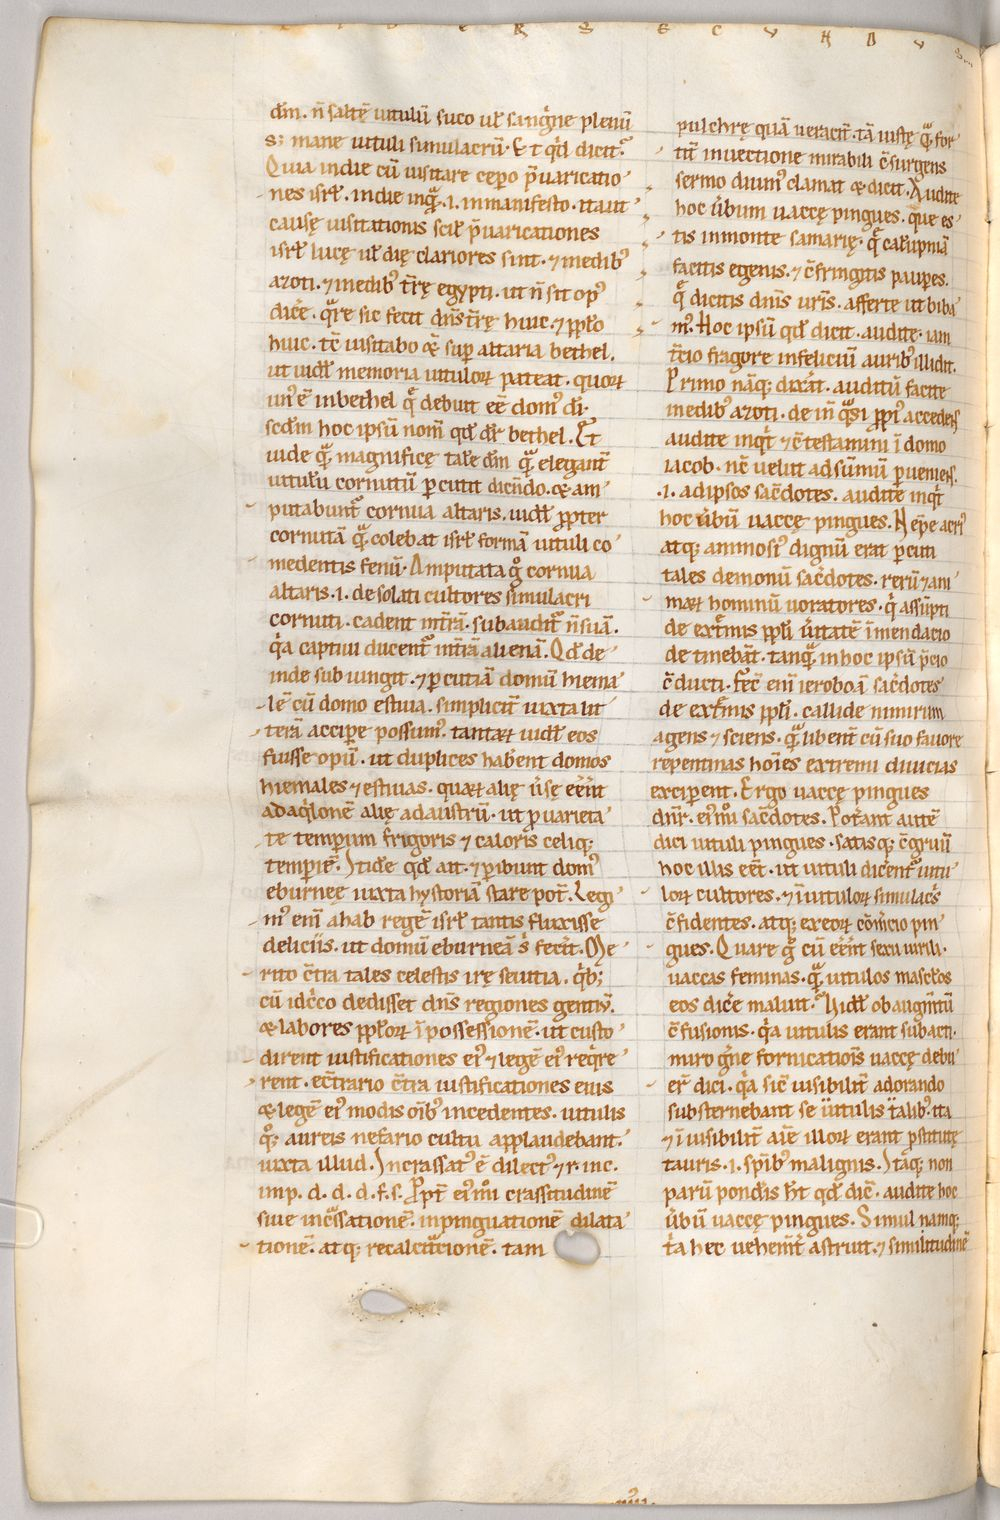 L I B E R S E C V N D V S
dm̄. n̄ saltē uitulū suco ul̓ sanguine plenū
s; inane uituli simulacrū. Et qd̓ dicit.
Quia in die cū uisitare cepero p̄uaricatio
nes isrl̓. in die inqͣ .i. in manifesto. ita ut
causę uisitationis scil̓ p̄uaricationes
isrl̓ lucę ul̓ dię clariores sint. ⁊ in edibꝰ
azoti. ⁊ in edibꝰ t̄rę egypti. ut n̄ sit opꝰ
dicē. qͣre sic fecit dn̄s t̄rę huic. ⁊ ppl̓o
huic. tc̄ uisitabo & sup altaria bethel.
ut uidl̓ memoria uitulorꝝ pateat. quorꝝ
unꝰ ē in bethel q̓ debuit eē domꝰ di.
scdm hoc ipsū nom̄ qd̓ dr̄ bethel. Et
uide qͣ magnificę tale dm̄ qͣ elegant̄
uitulū cornutū percutit dicendo. & am
putabunt̓ cornua altaris. uidl̓ ppter
cornutā qͣ colebat isrl̓ formā uituli co
medentis fenū. Amputata gͦ cornua
altaris .i. desolati cultores simulacri
cornuti. cadent in t̄rā. subaudit̓ n̄ suā.
qͥa captiui ducent̓ in t̄rā alienā. Qd̓ de
inde subiungit. ⁊ percutiā domū hiema
lē cū domo estiua. simplicit̄ iuxta lit
terā accipe possumꝰ. tantaꝝ uidl̓ eos
fuisse opū. ut duplices haberent domos
hiemales ⁊ estiuas. quaꝝ alię uersę eēnt
ad aqͥlonē alię ad austrū. ut p uarieta
te temporum frigoris ⁊ caloris celiq;
temperiē. Itidē qd̓ ait. ⁊ pibunt domꝰ
eburnęę iuxta hystoriā stare pot̄. Legi
mꝰ eni ahab regē isrl̓ tantis fluxisse
deliciis. ut domū eburneā s̓ fecit̄. Me
rito c̄tra tales celestis irę seuitia. qͥb;
cū idcͥco dedisset dn̄s regiones gentiū.
& labores ppl̓orꝝ ī possessionē. ut custo
dirent iustificationes eiꝰ ⁊ legē eiꝰ reqͥre
rent. ec̄trario c̄tra iustificationes eius
& legē eiꝰ modis oībꝰ incedentes. uitulis
qͦ; aureis nefario cultu applaudebant.
iuxta illud. Incrassatꝰ ē dilectꝰ ⁊ r. inc.
imp. d. d. d. f. s. Ppt̄ eiꝰmͦi crassitudinē
siue incͣssationē. inpinguationē dilata
tionē. atq; recalcitͣcionē. tam
pulchrę quā ueracit̄. tā iustę qͣ for
tit̄ inuectione mirabili c̄surgens
sermo diuinꝰ clamat & dicit. Audite
hoc uerbum uaccę pingues. que es
tis in monte samarię. qͥ calūpniā
facitis egenis. ⁊ c̄fringitis pauperes.
qͥ dicitis dn̄is uris. afferte ut biba
mꝰ. Hoc ipsū qd̓ dicit. audite. iam
t̄cio fragore infeliciū auribꝰ illidit.
Primo nāq; dixāt. auditū facite
in edibꝰ azoti. dein qͣsi ppiꝰ accedens
audite inqͥt ⁊ c̄testamini ī domo
iacob. nc̄ uelut ad sūmū perueniens.
.i. ad ipsos sac̄dotes. audite inqͥt
hoc uerbū uaccę pingues. Nēpe acriꝰ
atq; animosiꝰ dignū erat percuti
tales demonū sac̄dotes. rerū ⁊ ani
maꝝ hominū uoratores. qͥ assūpti
de ext̄mis ppl̓i ueritatē ī mendacio
detinebāt. tanqͣ in hoc ipsū p̄cio
c̄ducti. Fecͭ eni ieroboā sac̄dotes
de ext̄mis ppl̓i. callide nimirum
agens ⁊ sciens. qͣ libent̄ cū suo fauore
repentinas hoīes extremi diuicias
exciperent. Ergo uaccę pingues
dnr̄. eiꝰmͦi sac̄dotes. Poterant autē
dici uituli pingues. satisq; c̄gruū
hoc illis eēt. ut uituli dicerent̓ uitu
lorꝝ cultores. ⁊ ī uitulorꝝ simulacͥs
c̄fidentes. atq; ex eorꝝ cōmercio pin
gues. Quare gͦ cū eēnt sexu uirili.
uaccas feminas. qͣ uitulos masclōs
eos dicē maluit. Uidl̓ ob augm̄tū
c̄fusionis. qͥa uitulis erant subacti.
miro gn̄e fornicatiōis uaccę debu
er̄ dici. qͥa sic̄ uisibilit̄ adorando
substernebant se uitulis talibꝰ. ita
⁊ ī uisibilit̄ aīę illorꝝ erant p̄stitutę
tauris .i. spībꝰ malignis. Itaq; non
parū pondis ht̄ qd̓ dic̄. audite hoc
uerbū uaccę pingues. Simul namq;
t̓a hec uehem̄t̓ astruit. ⁊ similitudinē